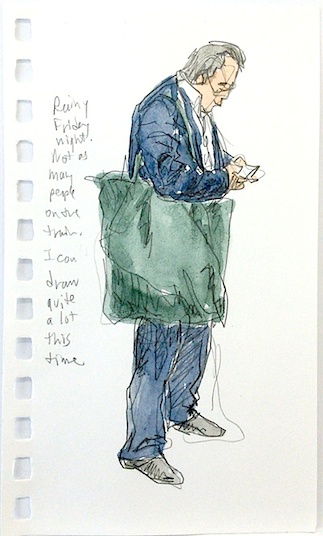 Rainy
Friday
night.
Not as
many
people
on the
train.
I can
draw
quite
a lot
this
time